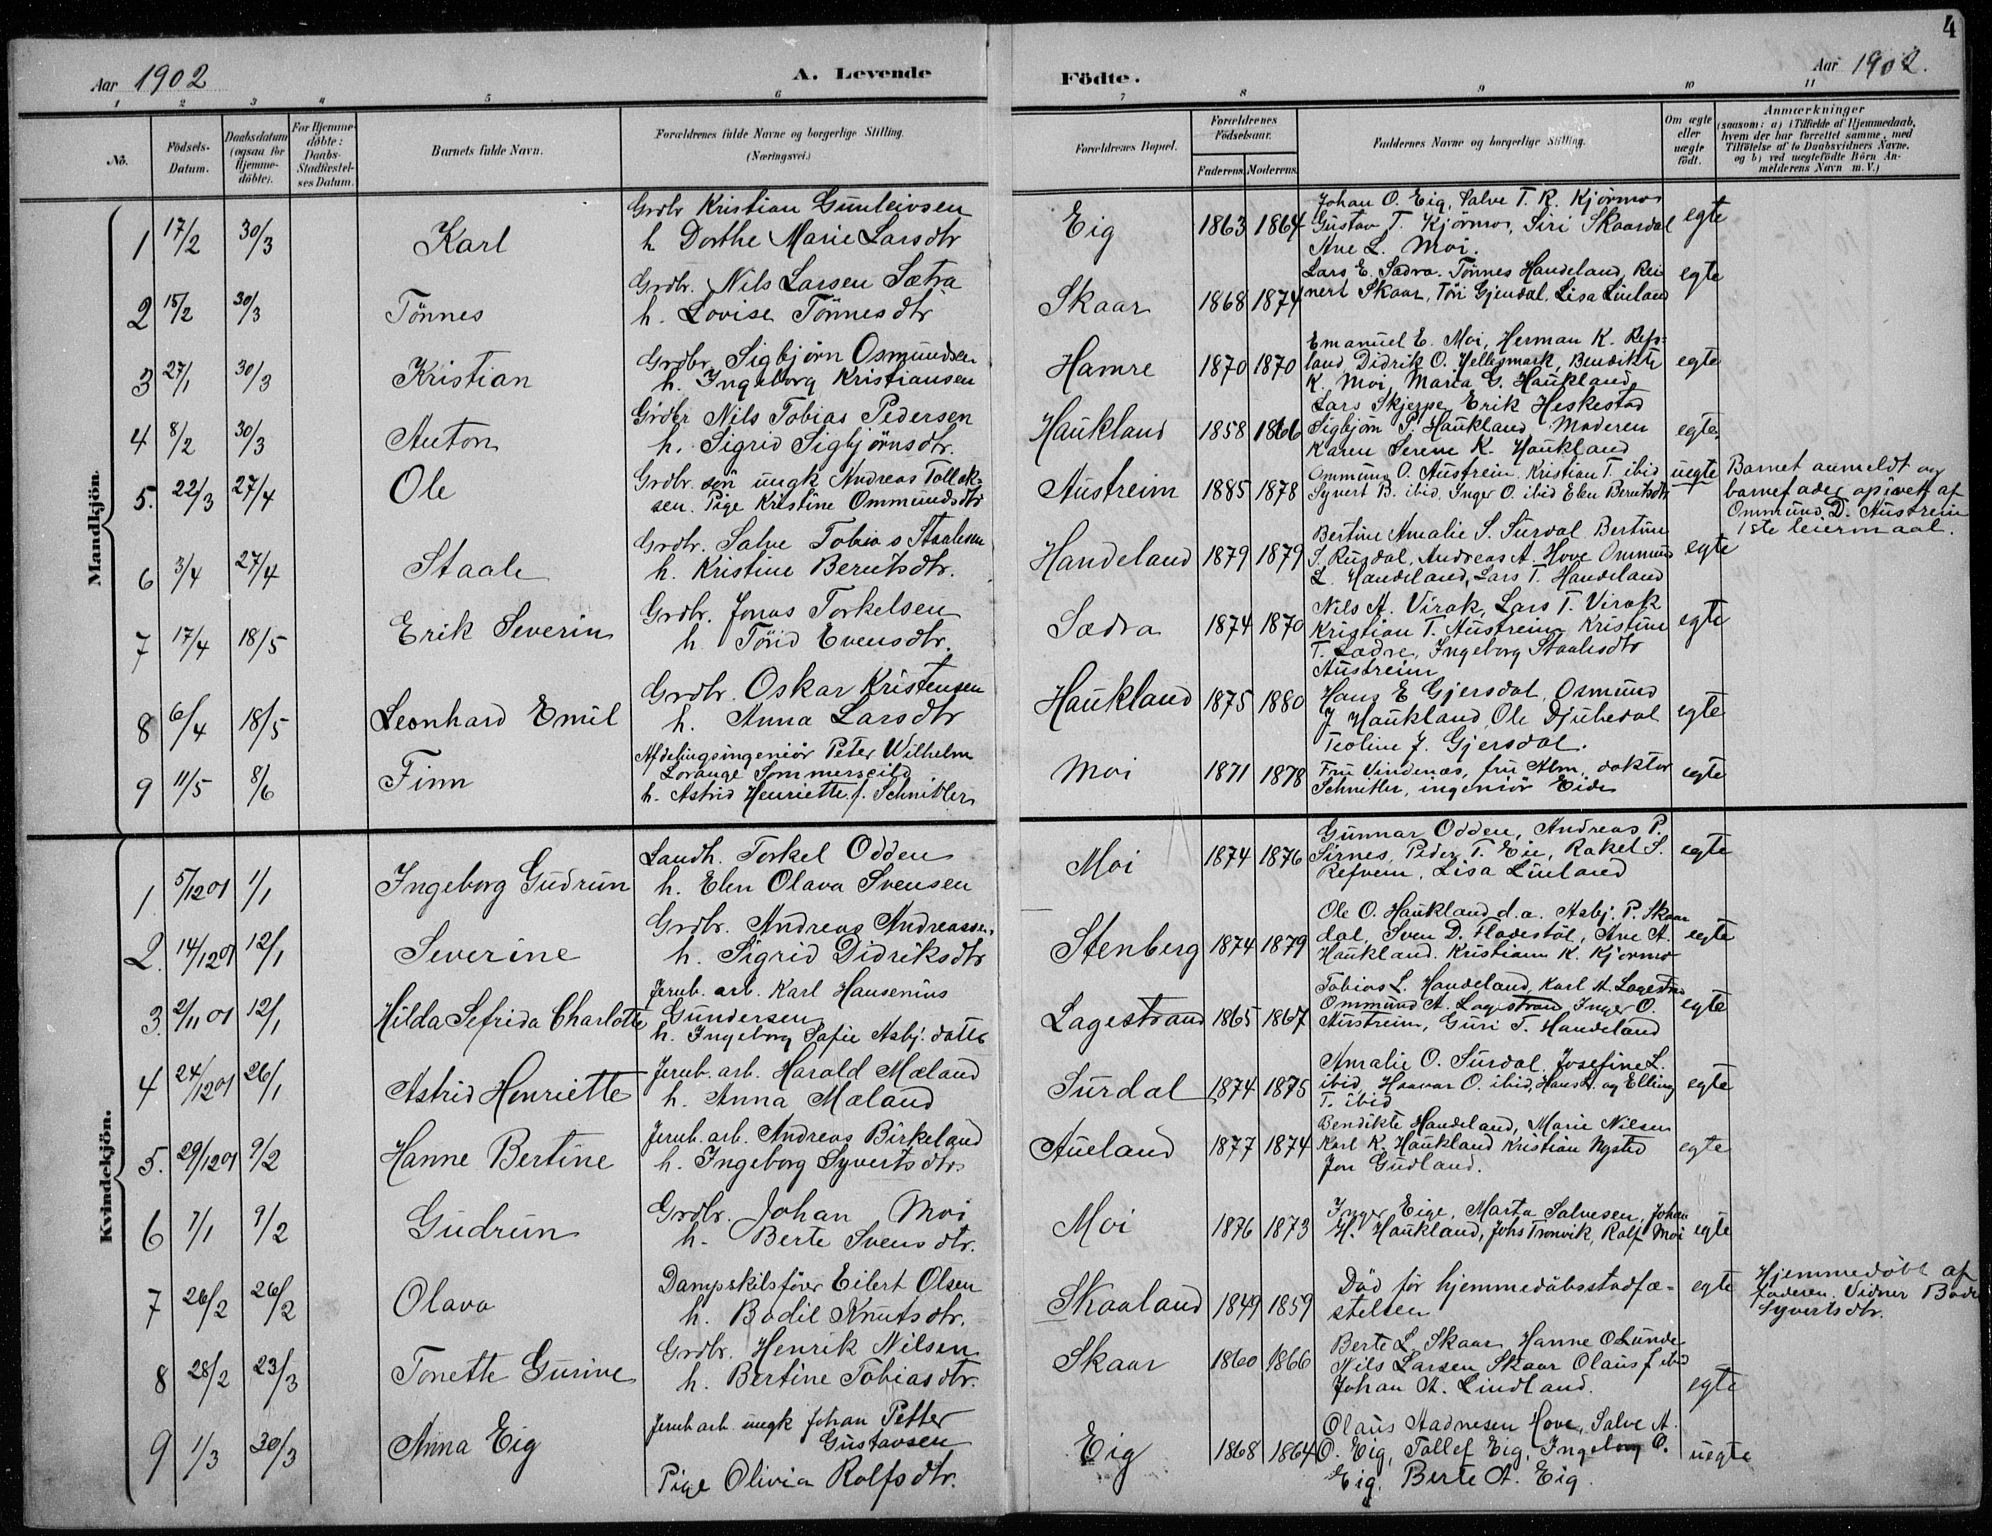 4
Aar 1902 A. Levende Födte. Aar 1902.
1 2 3 4 5 6 7 8 9 10 11
No.
Födsels-
Datum.
Daabsdatum
(ogsaa for
Hjemme-
döbte).
For Hjemme-
döbte:
Daabs-
Stadfæstel-
ses Datum.
Barnets fulde Navn.
Forældrenes fulde Navne og borgerlige Stilling.
(Næringsvei.)
Forældrenes Bopæl.
Forældrenes
Födselsaar.
Faderens. Moderens.
Faddernes Navne og borgerlige Stilling.
Om ægte
eller
uægte
födt.
Anmærkninger
(saasom: a) i Tilfælde af Hjemmedaab,
hvem der har forrettet samme, med
Tilföielse af to Daabsvidners Navne,
og b) ved uægtefödte Börn An-
melderens Navn m.V.)
Mandkjön.
1 17/2 30/3 Karl
Grdbr Kristian Gunleivsen
h. Dorthe Marie Larsdtr
Eig 1863 1864
Johan O. Eig, Salve T. R. Kjörmo
Gustav T. Kjörmo, Siri Skaardal
Ane L. Moi.
egte
2 15/2 30/3 Tönnes
Grdbr. Nils Larsen Sætra
h. Lovise Tönnesdtr
Skaar 1868 1874
Lars E. Sædra. Tönnes Handeland, Rei
nert Skaar, Töri Gjendal, Lisa Liuland
egte
3 27/1 30/3 Kristian
Grdbr. Sigbjörn Osmundsen
h. Ingeborg Kristiansen
Hamre 1870 1870
Emanuel E. Moi, Herman K. Refs-
land, Didrik O. Hellesmark, Bendikte
K. Moi, Maria G. Haukland
egte
4 8/2 30/3 Anton
Grdbr Nils Tobias Pedersen
h. Sigrid Sigbjörnsdtr.
Haukland 1858 1866
Lars Skjerpe, Erik Heskestad
Sigbjörn P. Haukland Moderen
Karen Serene K. Haukland
egte.
5. 22/3 27/4 Ole
Grdbr. sön ungk Andreas Tollak-
sen. Pige Kristine Ommundsdtr
Austreim 1885 1878
Ommund O. Austreim, Kristian T. ibid
Syvert B. ibid, Inger O. ibid Elen Beruksdtr
uegte
Barnet anmeldt og
barnefader opivet af
Ommund D. Austreim
1ste leiermaal.
6 3/4 27/4 Staale
Grdbr. Salve Tobias Staalesen
h. Kristine Berutsdtr.
Handeland 1879 1879
Bertine Amalie S. Surdal Bertine
S. Rusdal, Andreas A. Hove Ommund
L. Handeland, Lars T. Handeland
egte
7 17/4 18/5 Erik Severin
Grdbr. Jonas Torkelsen
h. Törid Evensdtr.
Sædra 1874 1870
Nils A. Virak, Lars T. Virak
Kristian T. Austreim Kristine
T. Sædre, Ingeborg Staalesdtr
Austreim
egte
8 6/4 18/5 Leonhard Emil
Grdbr. Oskar Kristensen
h. Anna Larsdtr
Haukland 1875 1880
Hans E Gjersdal, Osmund
J Haukland, Ole Djubedal
Teoline J. Gjersdal.
egte
9 11/5 8/6 Finn
Afdelingsingeniör Peter Wilhelm
Lorange Sommerscild
h. Astrid Henriette f. Schnitler
Moi 1871 1878
Fru Vindenæs, fru Alm, doktor
Schnitler, ingeniör Eide
egte
Kvindekjön.
1 5/12 01 1/1 Ingeborg Gudrun
Landh. Torkel Odden
h. Elen Olava Svensen
Moi 1874 1876
Gunnar Odden, Andreas P.
Sirnes, Peder T. Eie, Rakel S.
Refvem, Lisa Liuland
egte
2. 14/12 01 12/1 Severine
Grdbr. Andreas Andreassen
h. Sigrid Didriksdtr
Stenberg 1874 1879
Ole O. Haukland d.a. Asbj. P. Skaar
dal, Sven D. Fladestöl, Ane A.
Haukland. Kristiann K. Kjörmo
egte
3. 2/11 01 12/1 Hilda Sefrida Charlotte
Jernb. arb. Karl Hansenius
Gundersen
h. Ingeborg Sofie Asbj. datter
Lagestrand 1865 1867
Tobias L. Handeland, Karl A. Lagestrand
Ommund A. Lagestrand, Inger O.
Austreim, Guri T. Handeland
egte
4 24/12 01 26/1 Astrid Henriette
Jernb. arb. Harald Mæland
h. Anna Mæland
Surdal 1874 1875
Amalie O. Surdal, Josefine L.
ibid, Haavar O. ibid, Hans A. og Elling
T. ibid
egte
5. 29/12 01 9/2 Hanne Bertine
Jernb. arb. Andreas Birkeland
h. Ingeborg Syvertsdtr.
Aueland 1877 1874
Bendikte Handeland, Marie Nilsen
Karl K. Haukland Kristian Nysted
Jon Gudland.
egte
6 7/1 9/2 Gudrun
Grdbr. Johan Moi
h. Berte Svensdtr.
Moi 1876 1873
Inger Eige, Marta Salvesen, Johan
H. Haukland, Johs Tronvik, Rolf Moi
egte
7 26/2 26/2 Olava
Dampskibsförer Eilert Olsen
h. Bodil Knutsdtr.
Skaaland 1849 1859
Död för hjemmedöbsstadfæ-
stelsen
egte
Hjemmedöbt af
faderen. Vidner Bodil
Syvertsdtr.
8 28/2 23/3 Tonette Gurine
Grdbr. Henrik Nilsen
h. Bertine Tobiasdtr.
Skaar 1860 1866
Berte L. Skaar, Hanne O Lunde
Nils Larsen Skaar Olaus J ibid
Johan A. Lindland.
egte
9 1/3 30/3 Anna Eig
Jernb arb. ungk Johan Petter
Gustavsen
Pige Olivia Rolfsdtr.
Eig 1868 1864
Olaus Aadnesen Hove, Salve A.
O. Eig, Tollef Eig, Ingeborg O.
Eig, Berte A. Eig.
uegte